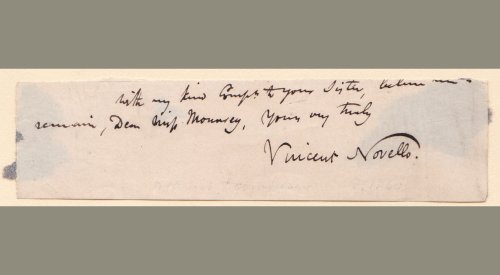 with my kind Comps. to your Sister, believe me
remain, Dear Miss Mounsey, Yours very truly
Vincent Novello.